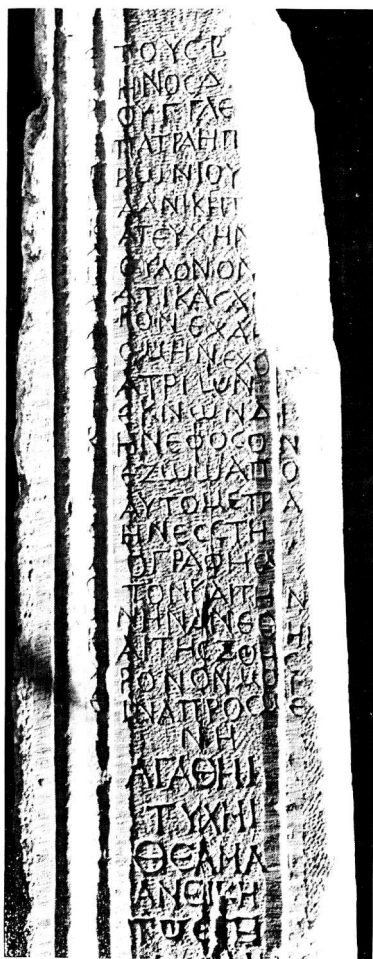 ΤΟΥϹΒ
ΗΝΟϹΔ
ΟΥΓΓΛΕ
ΠΑΤΡΑΗΠ
ΡΩΝΙΟΥ
ΔΑΝΙΚΕΙ
ΑΤΕΥΧΗΝ
ΥΛΟΝΟΝ
ΑΤΙΚΑΕΧ
ΡΟΝΕΧΑΙ
ΟΜΗΝΕΧΟ
ΑΤΡΙΩΝΟ
ΕΚΝΩΝΔΙ
ΗΝΕΦΟϹΟΝ
ΕΖΩΩΑΠΟ
ΑΥΤΟΜΕΤΡΑ
ΗΝΕϹΤΗ
ΟΓΡΑΦΗϹ
ΤΟΝΚΑΙΤΗΝ
ΝΗΝΑΝΕΘΗ
ΑΙΤΗϹΖΩϹ
ΡΟΝΟΝΜ
ΙΝΑΠΡΟϹΕ
ΝΗ
ΑΓΑΘΗΙ
ΤΥΧΗΙ
ΘΕΑΜΑ
ΑΝΕΙΚΗ